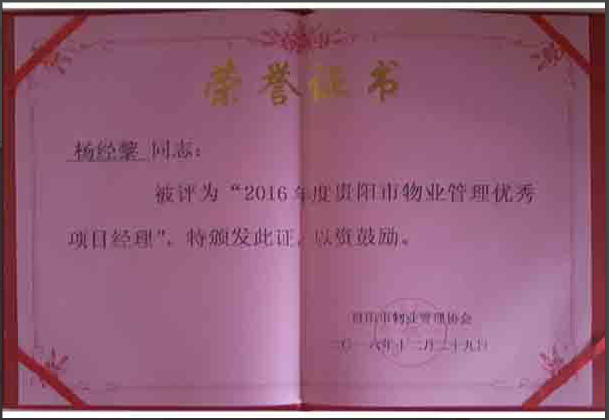 荣誉证书
杨经黎 同志：
被评为“2016年度贵阳市物业管理优秀
项目经理”，特颁发此证，以资鼓励。
贵阳市物业管理协会
二〇一六年十二月二十九日